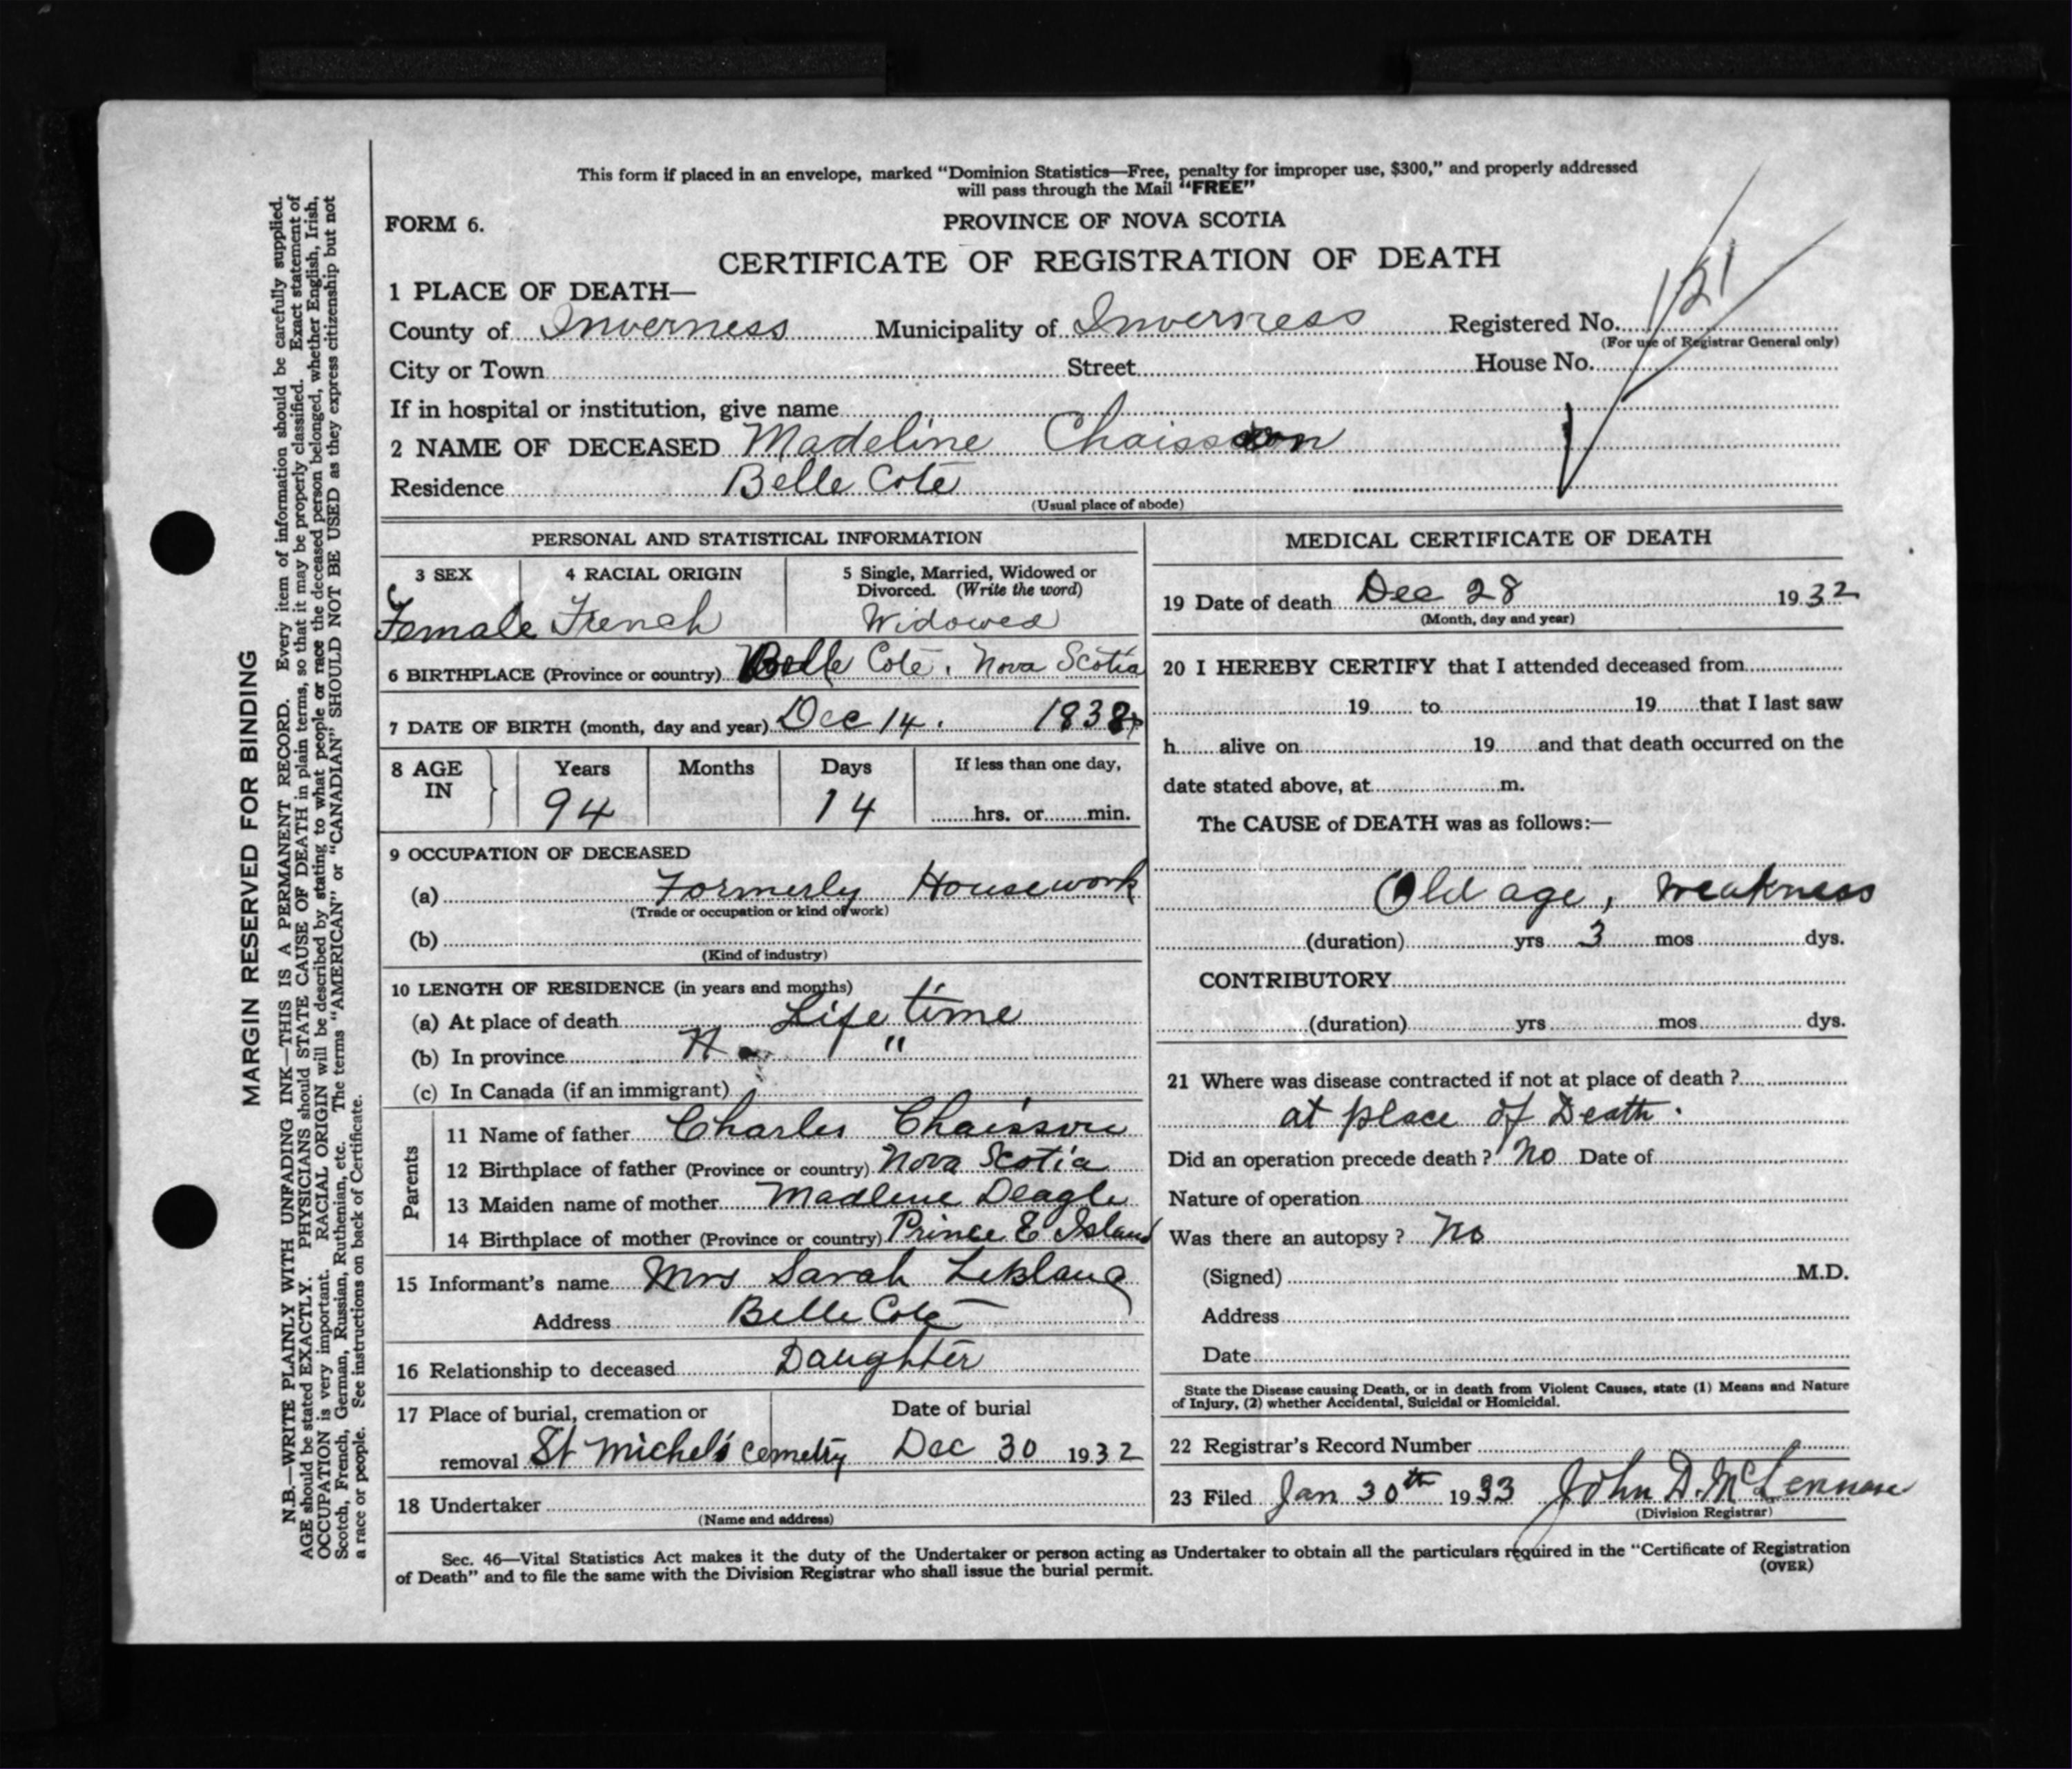 This form if placed in an envelope, marked "Dominion Statistics—Free, penalty for improper use, $300," and properly addressed
will pass through the Mail "FREE"
FORM 6.
PROVINCE OF NOVA SCOTIA
CERTIFICATE OF REGISTRATION OF DEATH
1 PLACE OF DEATH—
County of Inverness Municipality of Inverness Registered No. 121
(For use of Registrar General only)
City or Town Street House No.
If in hospital or institution, give name
2 NAME OF DECEASED Madeline Chaisson
Residence Belle Cote
(Usual place of abode)
PERSONAL AND STATISTICAL INFORMATION
3 SEX 4 RACIAL ORIGIN 5 Single, Married, Widowed or
Divorced. (Write the word)
Female French Widowed
6 BIRTHPLACE (Province or country) Belle Cote, Nova Scotia
7 DATE OF BIRTH (month, day and year) Dec 14. 1838
8 AGE IN Years Months Days If less than one day,
94 14 hrs. or min.
9 OCCUPATION OF DECEASED
(a) Formerly Housework
(Trade or occupation or kind of work)
(b)
(Kind of industry)
10 LENGTH OF RESIDENCE (in years and months)
(a) At place of death Life time
(b) In province "
(c) In Canada (if an immigrant)
Parents
11 Name of father Charles Chaisson
12 Birthplace of father (Province or country) Nova Scotia
13 Maiden name of mother Madline Deagle
14 Birthplace of mother (Province or country) Prince E Island
15 Informant's name Mrs Sarah LeBlanc
Address Belle Cote
16 Relationship to deceased Daughter
17 Place of burial, cremation or Date of burial
removal St Michel's cemetry Dec 30 1932
18 Undertaker
(Name and address)
MEDICAL CERTIFICATE OF DEATH
19 Date of death Dec 28 1932
(Month, day and year)
20 I HEREBY CERTIFY that I attended deceased from
19 to 19 that I last saw
h alive on 19 and that death occurred on the
date stated above, at m.
The CAUSE of DEATH was as follows:—
Old age, weakness
(duration) yrs 3 mos dys.
CONTRIBUTORY
(duration) yrs mos dys.
21 Where was disease contracted if not at place of death ?
at place of Death.
Did an operation precede death ? No Date of
Nature of operation
Was there an autopsy ? No
(Signed) M.D.
Address
Date
State the Disease causing Death, or in death from Violent Causes, state (1) Means and Nature
of Injury, (2) whether Accidental, Suicidal or Homicidal.
22 Registrar's Record Number
23 Filed Jan 30th 1933 John D. McLennan
(Division Registrar)
Sec. 46—Vital Statistics Act makes it the duty of the Undertaker or person acting as Undertaker to obtain all the particulars required in the "Certificate of Registration
of Death" and to file the same with the Division Registrar who shall issue the burial permit.
(OVER)
MARGIN RESERVED FOR BINDING
N.B.—WRITE PLAINLY WITH UNFADING INK—THIS IS A PERMANENT RECORD. Every item of information should be carefully supplied.
AGE should be stated EXACTLY. PHYSICIANS should STATE CAUSE OF DEATH in plain terms, so that it may be properly classified. Exact statement of
OCCUPATION is very important. RACIAL ORIGIN will be described by stating to what people or race the deceased person belonged, whether English, Irish,
Scotch, French, German, Russian, Ruthenian, etc. The terms "AMERICAN" or "CANADIAN" SHOULD NOT BE USED as they express citizenship but not
a race or people. See instructions on back of Certificate.